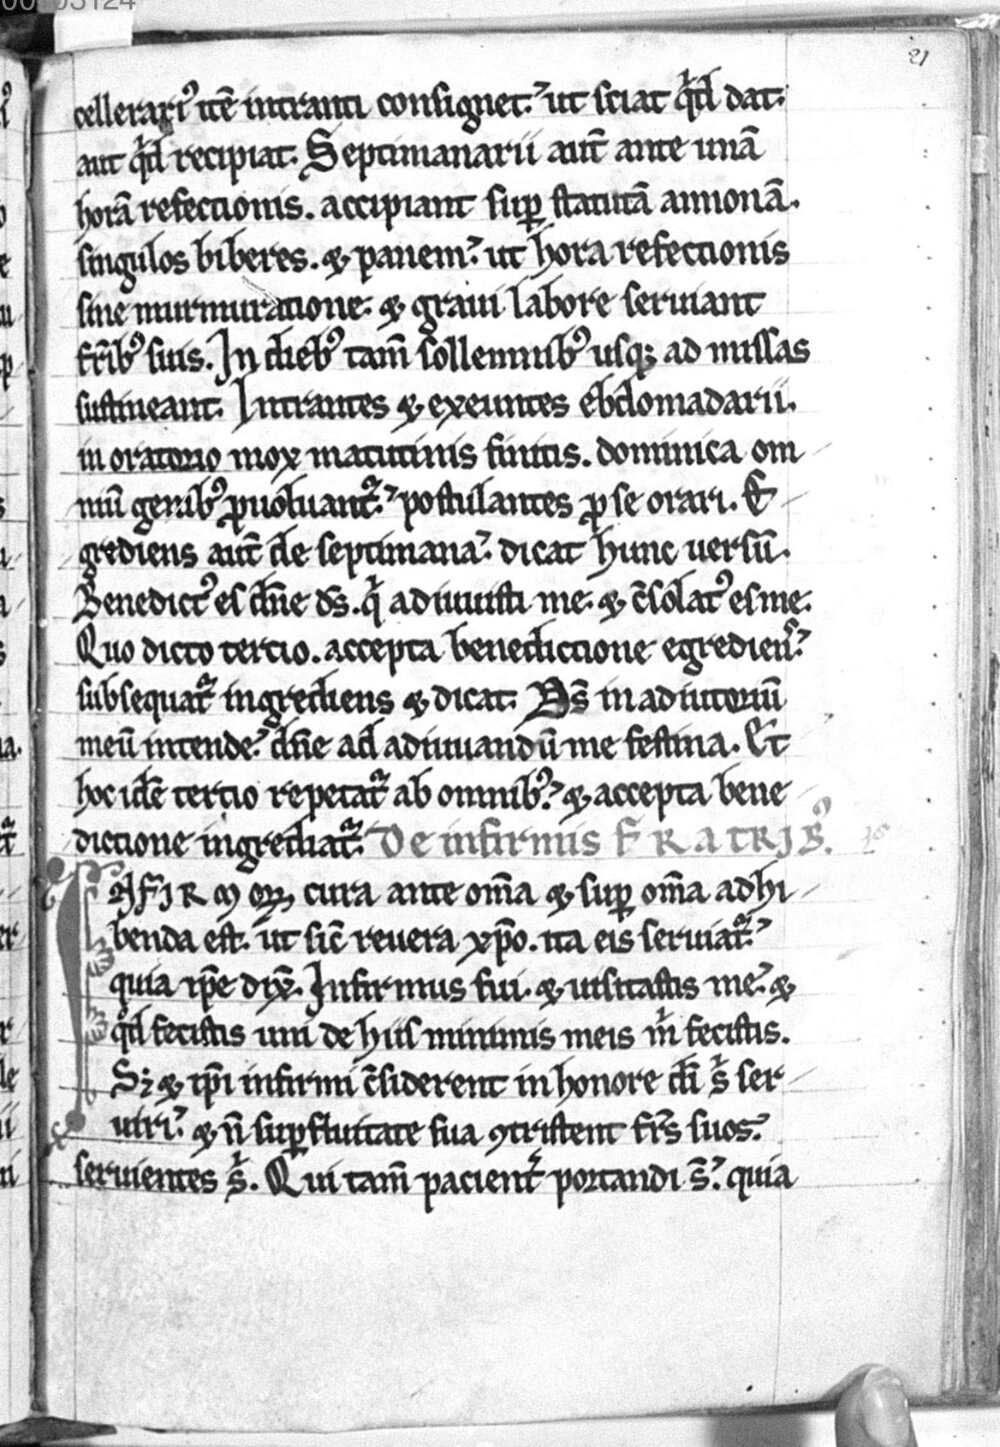 21
cellerari᷒ itē intranti consignet. ut sciat qͥd dat.
aut qͥd recipiat. Septimanarii aut̄ ante unā
horā refectionis. accipiant suꝑ statutā annonā.
singulos biberes. & panem. ut hora refectionis
sine murmuratione. & graui labore seruiant
fr̄ib᷒ suis. In dieb᷒ tam̄ sollemnib᷒ usqꝫ ad missas
sustineant. Intrantes & exeuntes ebdomadarii.
in oratorio mox matutinis finitis. dominica om
niū genib᷒ ꝓuoluant᷑. postulantes ꝓ se orari. E
grediens aut̄ de septimana. dicat hunc uersū.
Benedict᷒ es dn̄e ds̄. qͥ adiuuisti me. & c̄solat᷒ es me.
Quo dicto tertio. accepta benedictione egredien̄s.
subsequat᷑ ingrediens & dicat. Ds̄ in adiutoriū
meū intende. dn̄e ad adiuuandū me festina. Et
hoc idē tertio repetat᷑ ab omnib᷒. & accepta bene
dictione ingrediat᷑. De infirmis FRATRIB᷒.
INFIRMOꝜ cura ante om̄a & suꝑ om̄a adhi
benda est. ut sic̄ reuera xp̄o. ita eis seruiat᷑.
quia ip̄e dix̄. Infirmus fui. & uisitastis me. &
qͦd fecistis uni de hiis minimis meis m̄ fecistis.
Sꝫ & ip̄i infirmi c̄siderent in honore di̅ s̄ ser
uiri. & n̄ suꝑfluitate sua ꝯtristent fr̄s suos.
seruientes s̄. Qui tam̄ pacient᷑ portandi s̄. quia